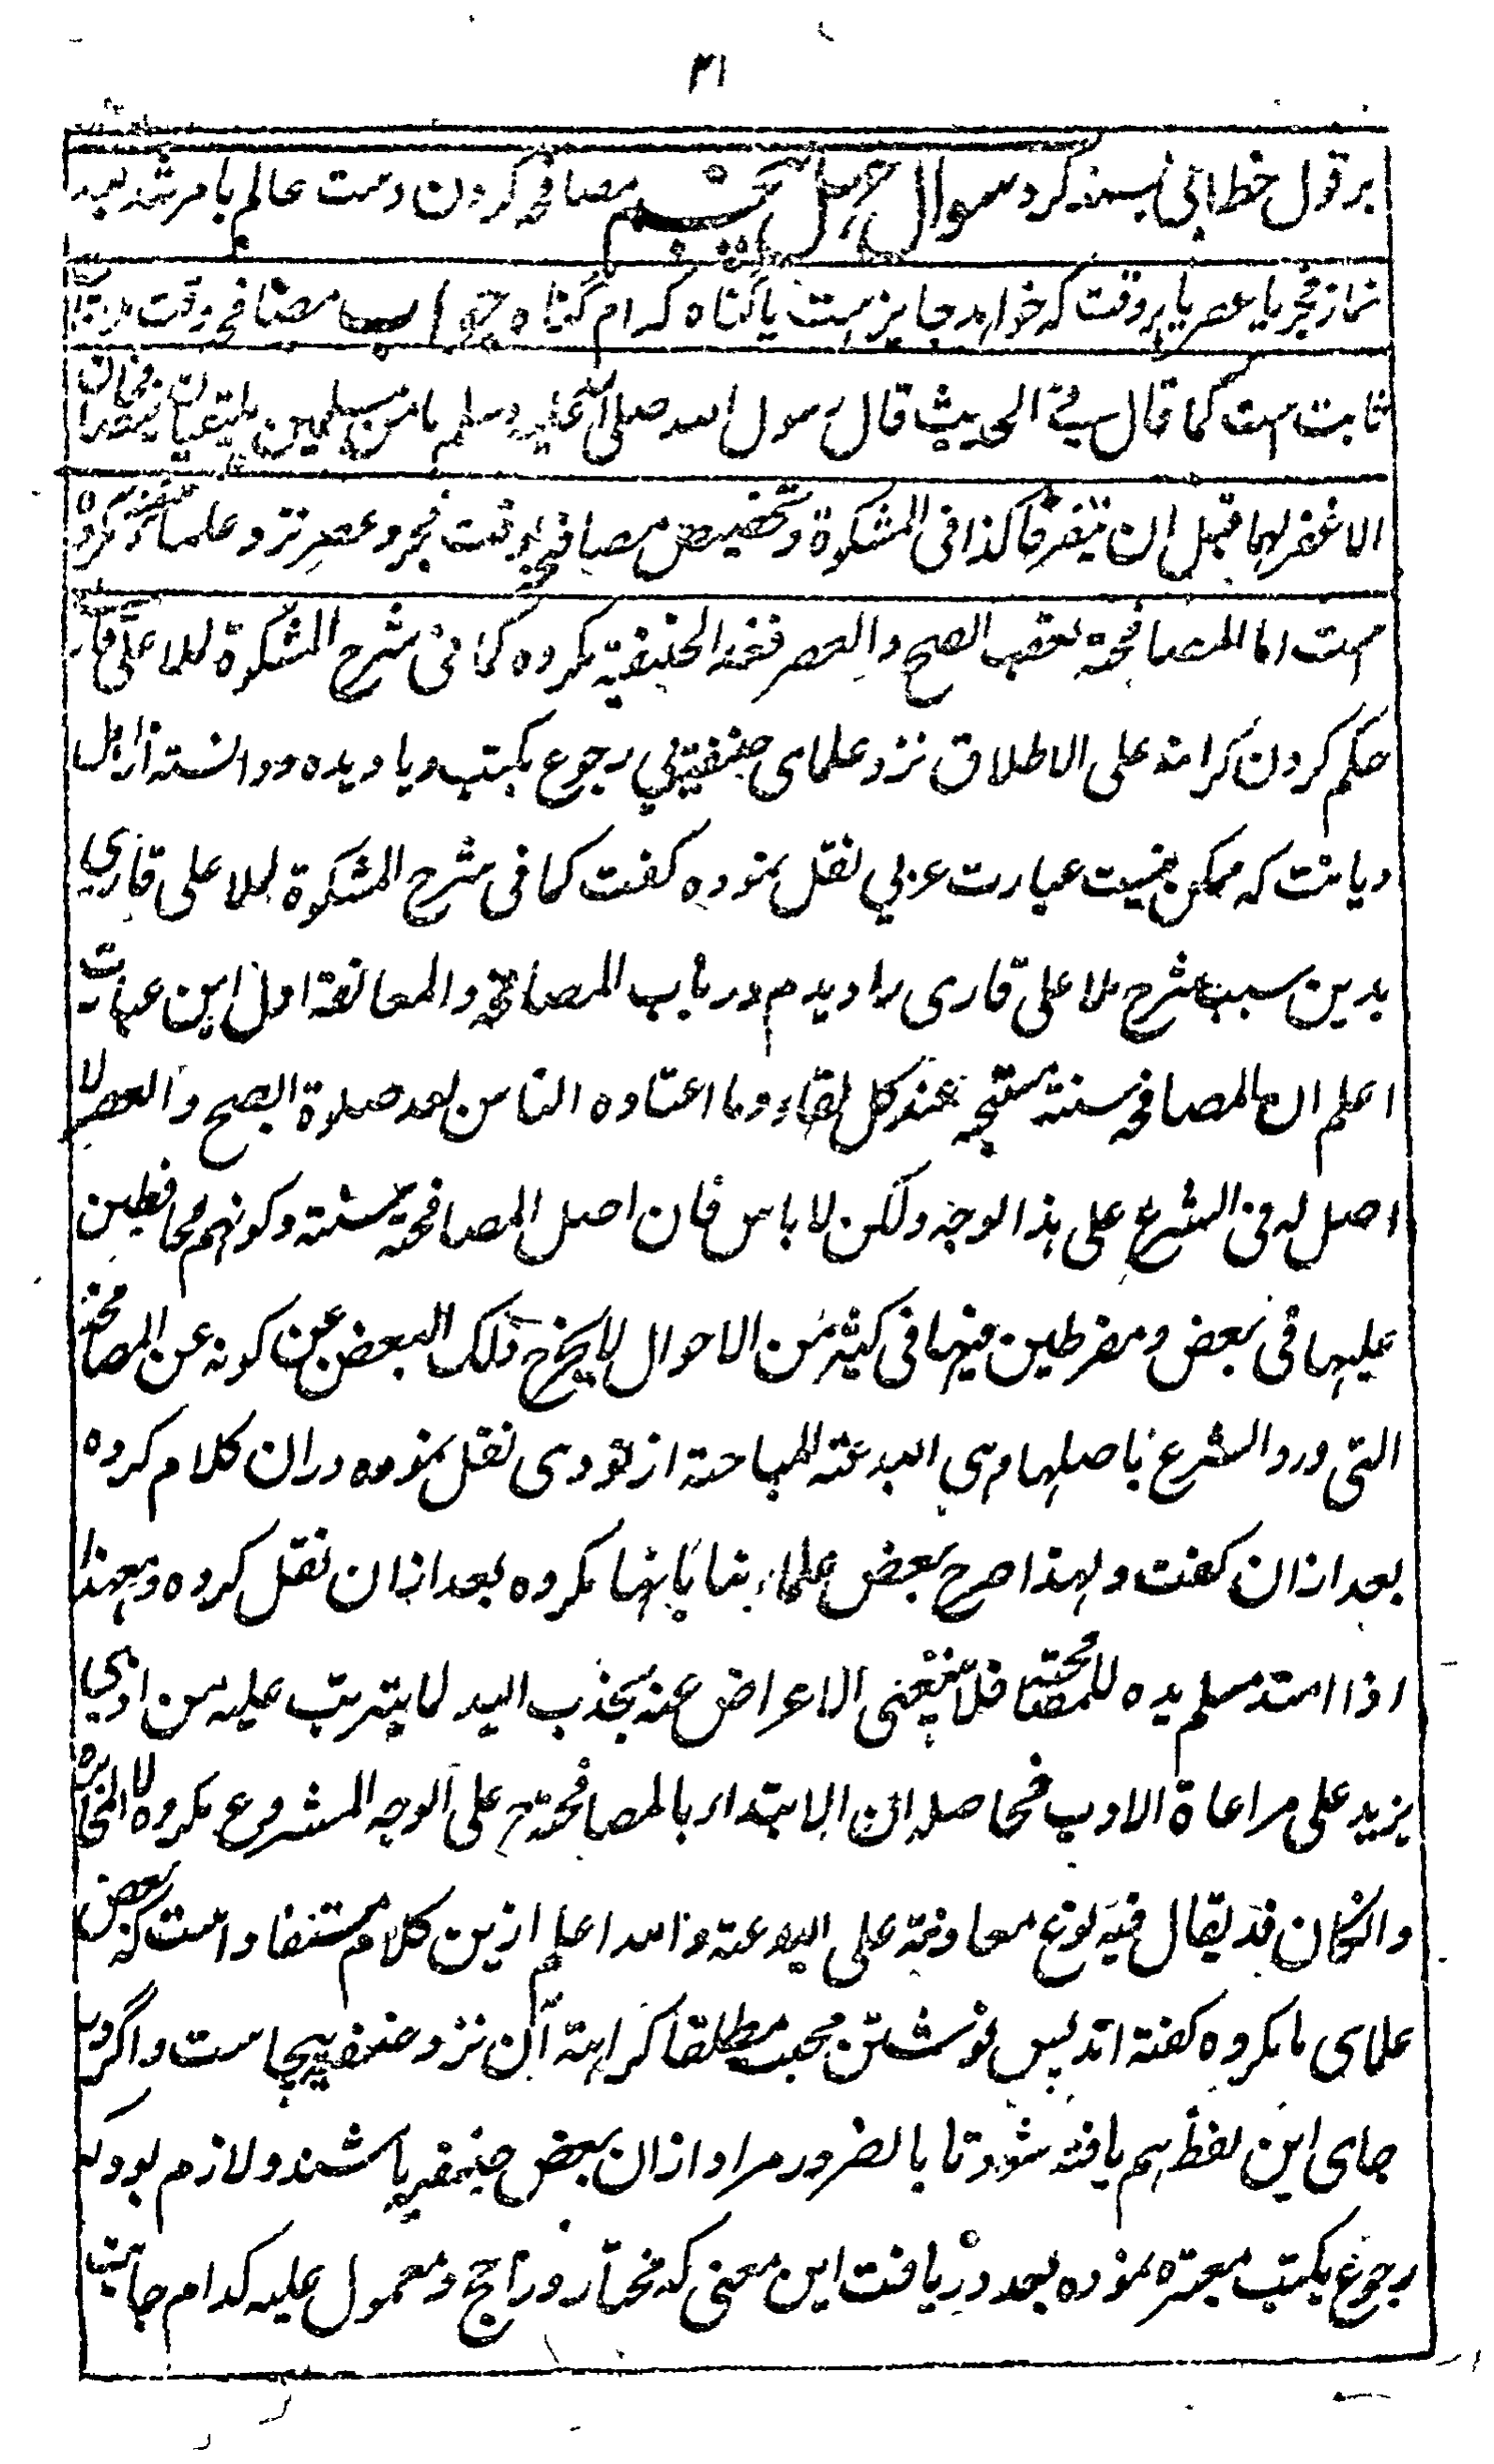 ۳۱
بر قول خطابی بسند کرد سوال چهل و هشتم مصافحه کردن دست عالم یا مرشد بعد
نماز فجر یا عصر یا هر وقت که خواهد جایز هست یا گناه کدام گناه جواب مصافحه وقت ملاقات
ثابت ست کما قال فی الحدیث قال رسول الله صلی الله علیه وسلم ما من مسلمین یلتقیان فیتصافحان
الا غفر لهما قبل ان یتفرقا کذا فی المشکوة و تخصیص مصافحه بوقت فجر و عصر نزد علماء حنفیه مکروه
ست اما المصافحة بعقب الصبح والعصر فعند الحنیفیة مکروه کما فی شرح المشکوة لملا علی قاری
حکم کردن کراهته علی الاطلاق نزد علمای حنفیة بی رجوع بکتب و یا دیده و دانسته از اهل
دیانت که ممکن نیست عبارت عربی نقل نموده گفت کما فی شرح المشکوة لملا علی قاری
بدین سبب شرح ملا علی قاری را دیدم در باب المصافحة والمعانقة اول این عبارت
اعلم ان المصافحة سنة مستحبة عند کل لقاء وما اعتاده الناس بعد صلوة الصبح والعصر لا
اصل له فی الشرع علی هذا الوجه ولکن لا باس فان اصل المصافحة سنة وکونهم محافظین
علیها فی بعض ومفرطین فیها فی کثیر من الاحوال لا یخرج ذلک البعض عن کونه عن المصافحة
التی ورد الشرع باصلها وهی البدعة المباحة از نودی نقل نموده دران کلام کرده
بعد ازان گفت ولهذا صرح بعض علماءنا بانها مکروه بعد ازان نقل کرده ومعهذا
اذا امتد مسلم یده للمصافحة فلا ینبغی الاعراض عنه بجذب الید لما یترتب علیه من اذی
یزید علی مراعاة الادب فحاصله ان الابتداء بالمصافحة ح علی الوجه المشروع مکروه لا المجابرة
وان کان قد یقال فیه نوع معاونة علی البدعة والله اعلم ازین کلام مستفاد است که بعض
علمای ما مکروه گفته اند پس نوشتن مجیب مطلقا کراهته آن نزد حنفیه بیجاست و اگر در
جای این لفظ هم یافته شود تا بالضرور مراد ازان بعض حنفیه باشند و لازم بود که
رجوع بکتب معتبره نموده بعد دریافت این معنی که مختار و راجح و معمول علیه کدام جانب